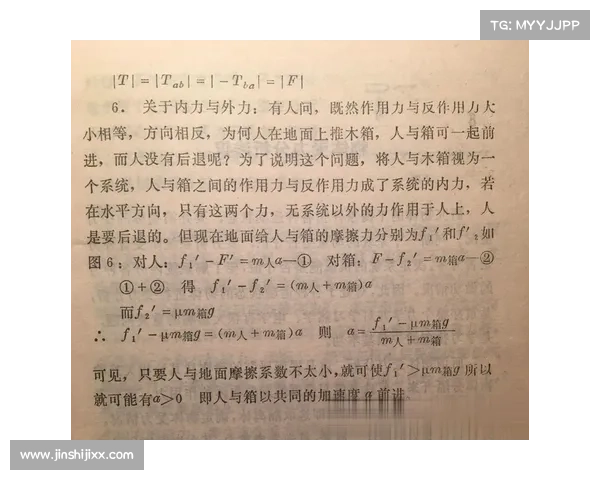 TG: MYYJJPP
|T|=|T_ab|=|-T_ba|=|F|
6. 关于内力与外力：有人问，既然作用力与反作用力大
小相等，方向相反，为何人在地面上推木箱，人与箱可一起前
进，而人没有后退呢？为了说明这个问题，将人与木箱视为一
个系统，人与箱之间的作用力与反作用力成了系统的内力，若
在水平方向，只有这两个力，无系统以外的力作用于人上，人
是要后退的。但现在地面给人与箱的摩擦力分别为f₁′和f′₂如
图6：对人：f₁′-F′=m人a—① 对箱：F-f₂′=m箱a—②
①+② 得 f₁′-f₂′=(m人+m箱)a
而f₂′=μm箱g
∴ f₁′-μm箱g=(m人+m箱)a 则 a=(f₁′-μm箱g)/(m人+m箱)
可见，只要人与地面摩擦系数不太小，就可使f₁′>μm箱g所以
就可能有a>0 即人与箱以共同的加速度a前进
www.jinshijixx.com